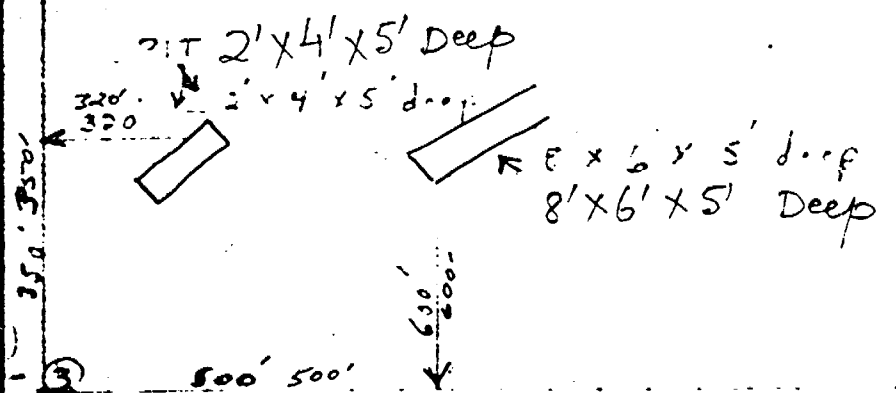 PIT 2'X4'X5' Deep
320' 2' x 4' x 5' deep
320
8 x 6 x 5' deep
8'X6'X5' Deep
350' 350'
600'
③ 500' 500'